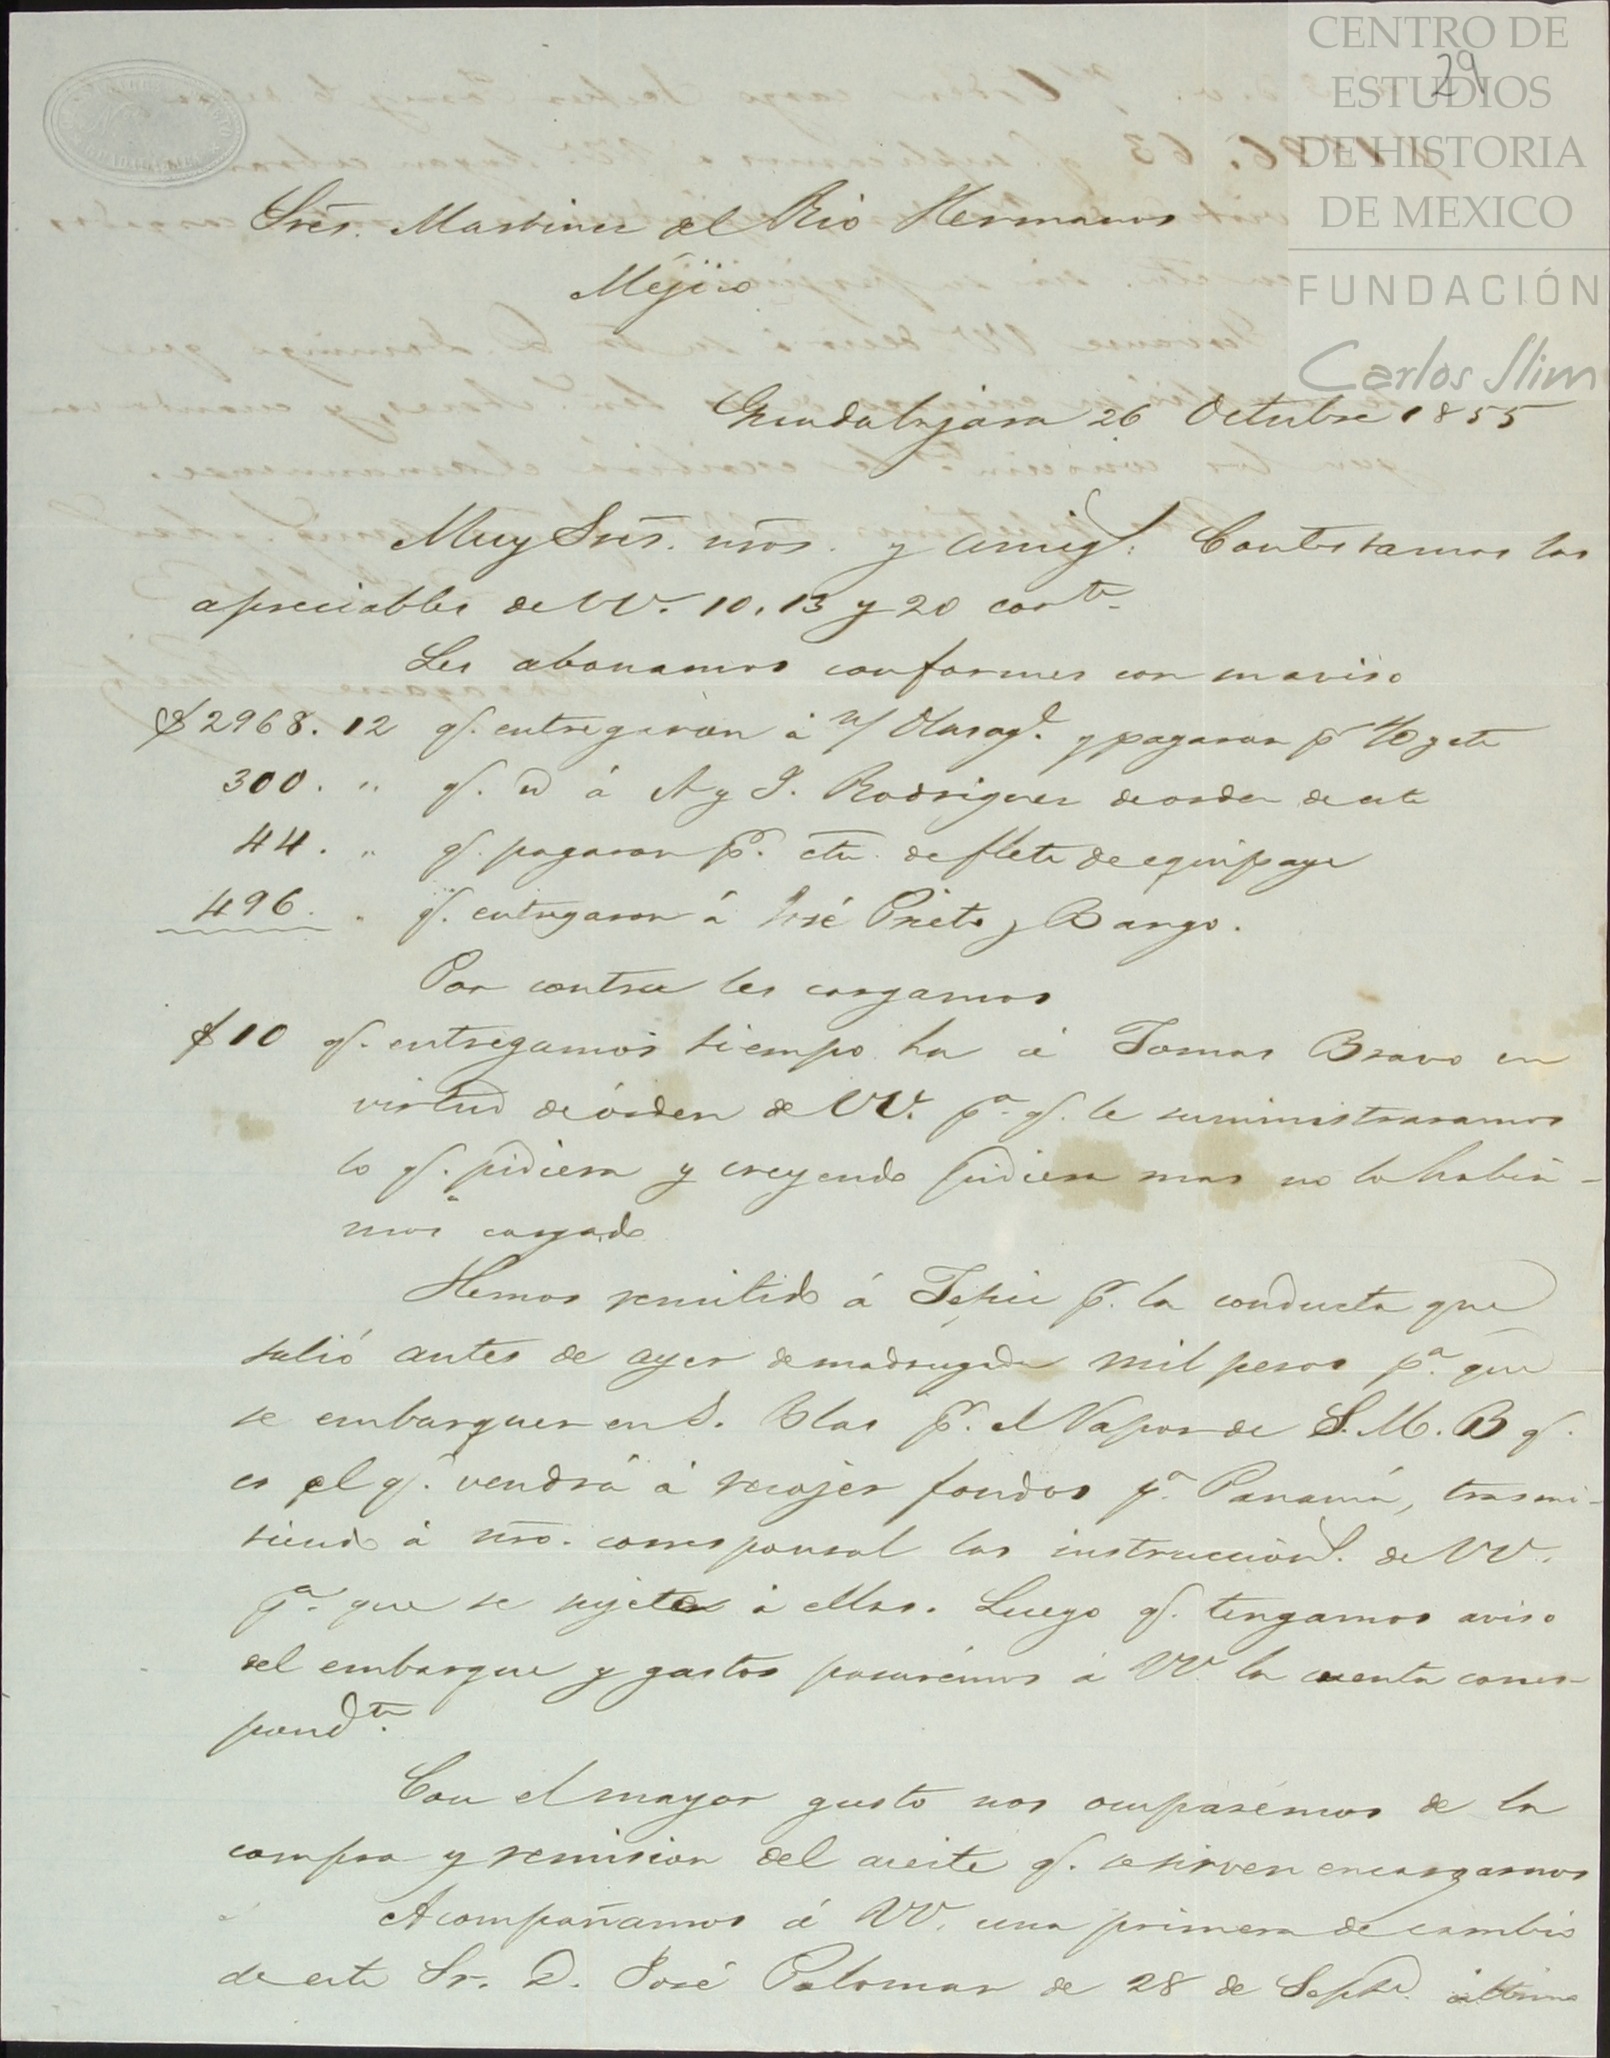 CENTRO DE
ESTUDIOS
DE HISTORIA
DE MEXICO
FUNDACIÓN
Carlos Slim
29
Sres. Martinez del Rio Hermanos
Méjico
Guadalajara 26 Octubre 1855
Muy Sres. nros. y amigs: Contestamos las
apreciables de VV. 10, 13 y 20 corte.
Les abonamos conformes con su aviso
$2968. 12 q. entregaron á n/ y pagaron pr
300. " q. id á A y J. Rodriguez de orden de este
44. " q. pagaron pr. cta. de flete de equipage
496. " q. entregaron á José Prieto y Bango.
Por contra les cargamos
$10 q. entregamos tiempo ha á Tomas Bravo en
virtud de órden de VV. pa. q. le suministraramos
lo q. pidiera y creyendo pidiera mas no lo habia-
mos cargado
Hemos remitido á Tepic pr. la conducta que
salió antes de ayer de madrugada mil pesos pa. que
se embarquen en S. Blas pr. el Vapor de S. M. B q.
es el q. vendrá á recojer fondos pa. Panamá, trasmi-
tiendo á nro. corresponsal las instruccions. de VV.
pa. que se sujete á ellas. Luego q. tengamos aviso
del embarque y gastos pasarémos á VV. la cuenta corres-
pondte.
Con el mayor gusto nos ocuparémos de la
compra y remision del aceite q. se sirven encargarnos
Acompañamos á VV. una primera de cambio
de este Sr. D. José Palomar de 28 de Sepbe. último